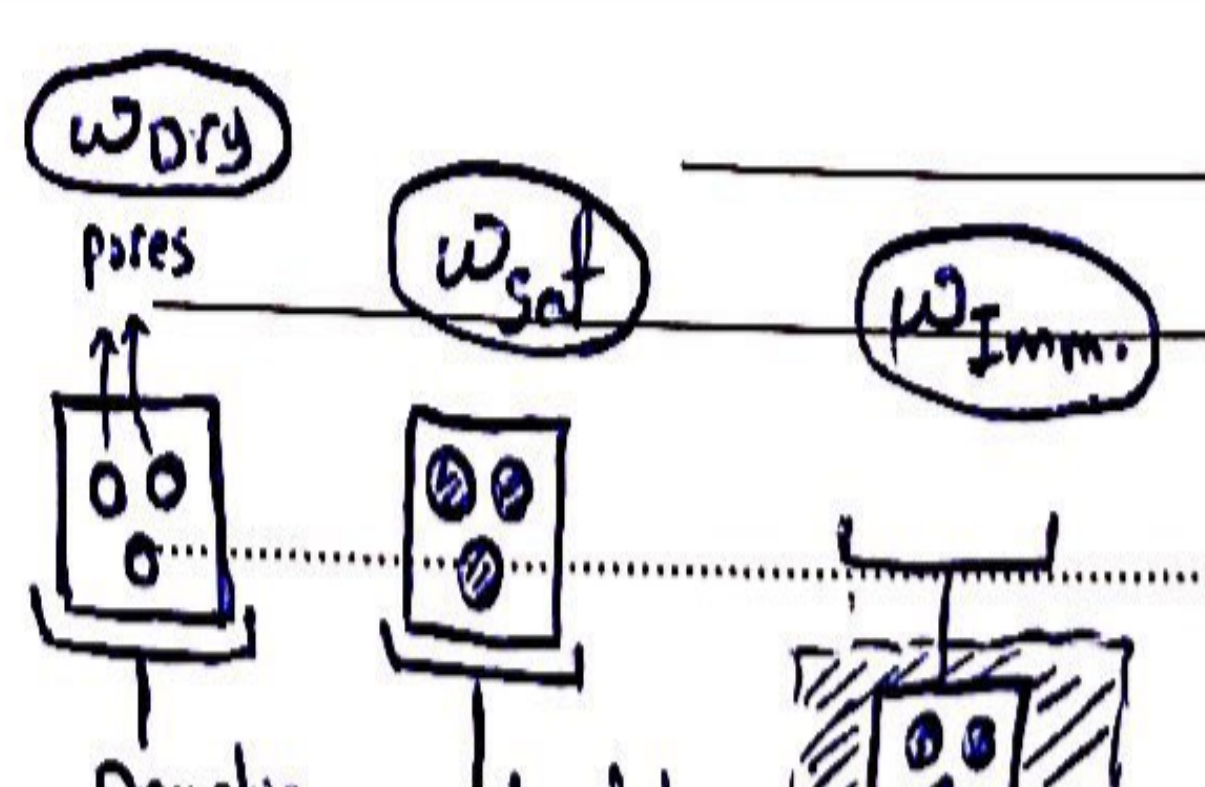 ωDry
pores
ωSat
ωImm.